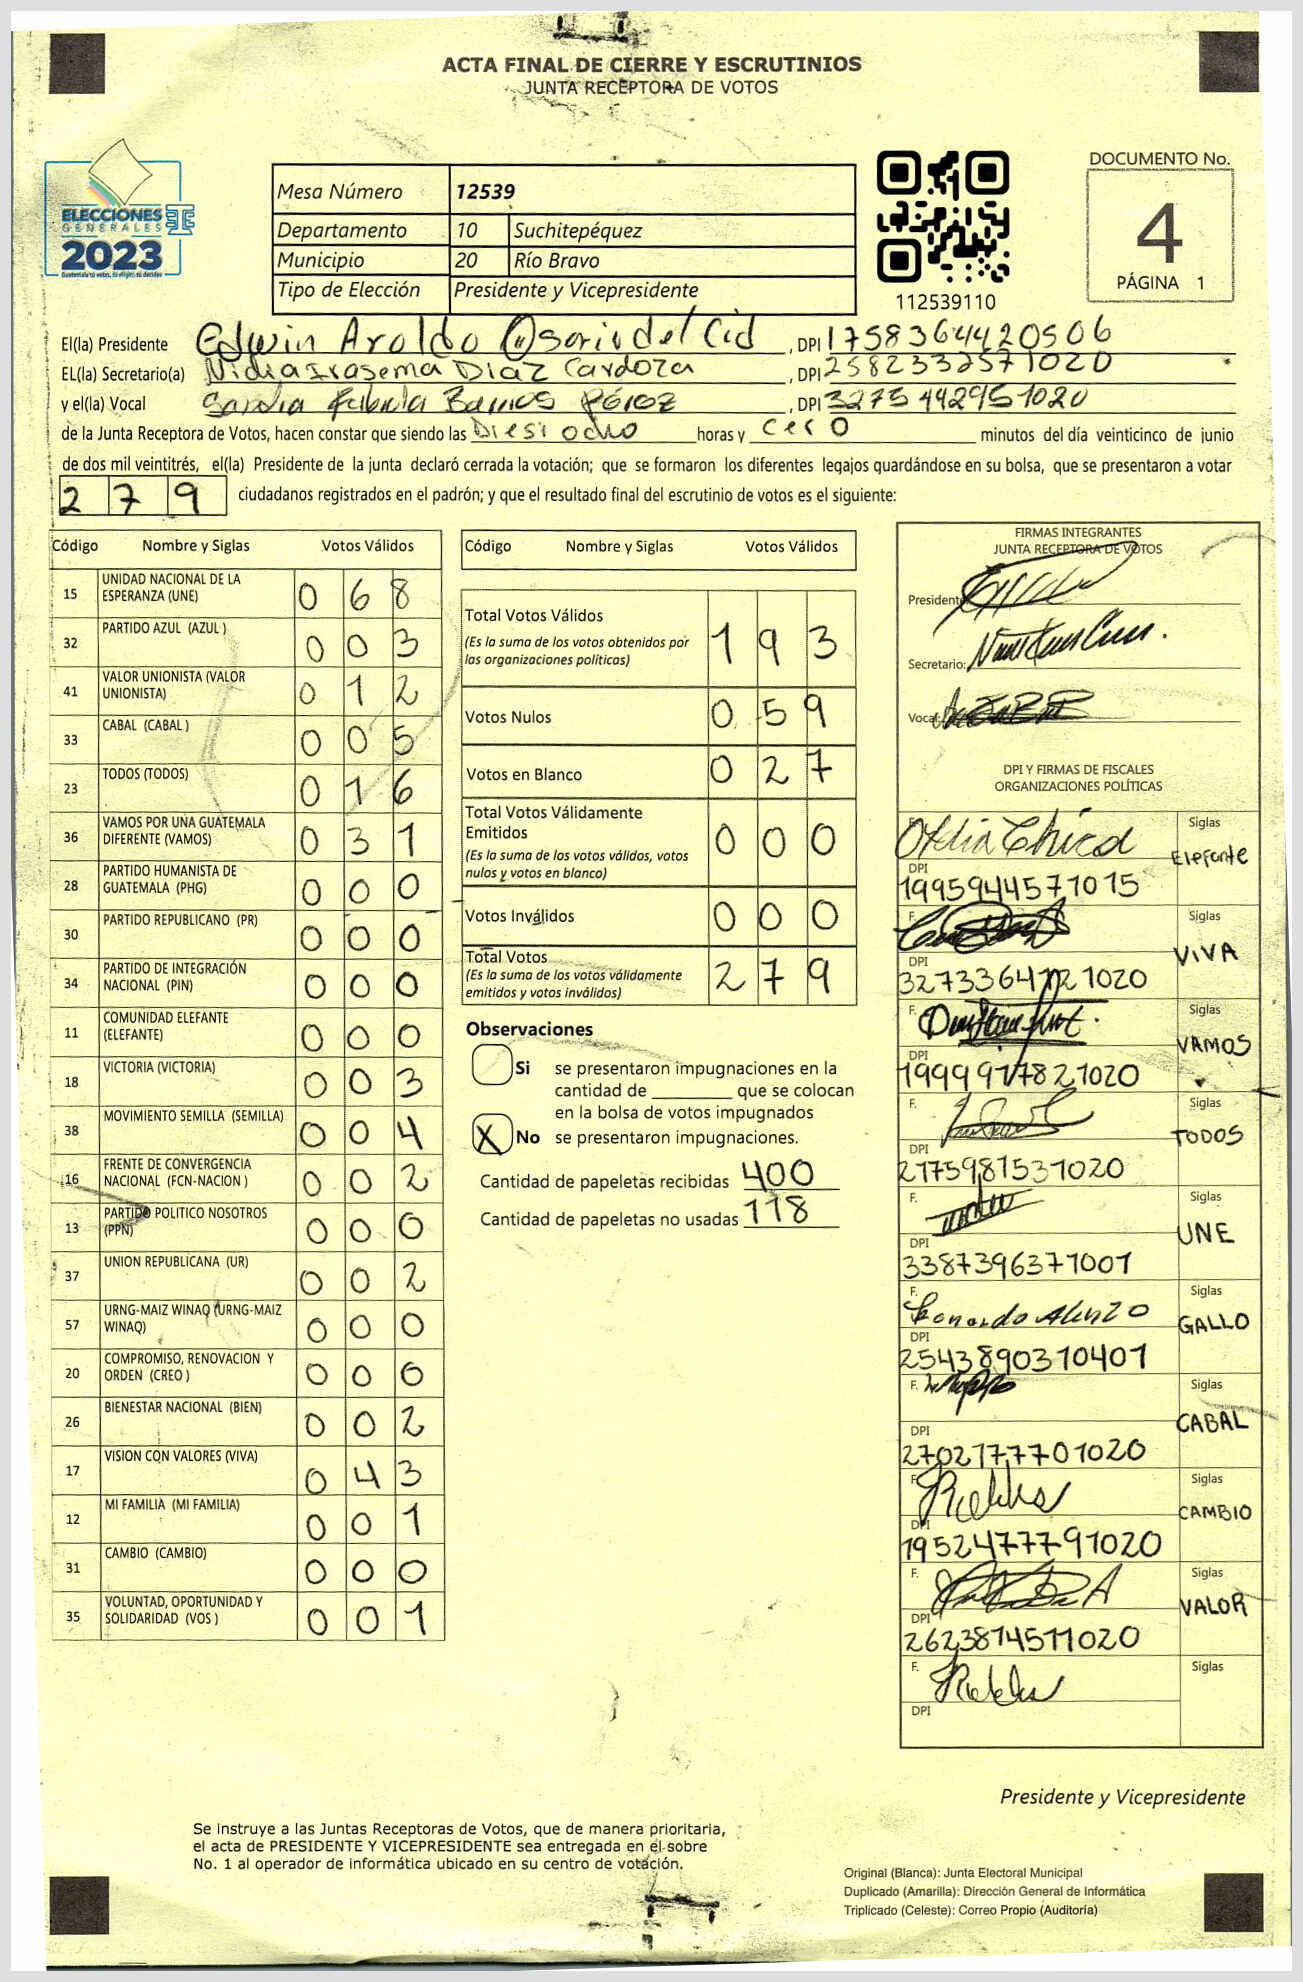 ACTA FINAL DE CIERRE Y ESCRUTINIOS
JUNTA RECEPTORA DE VOTOS
ELECCIONES
GENERALES
2023
Mesa Número 12539
Departamento 10 Suchitepéquez
Municipio 20 Río Bravo
Tipo de Elección Presidente y Vicepresidente
112539110
DOCUMENTO No.
4
PÁGINA 1
El(la) Presidente Edwin Aroldo Osorio del Cid, DPI 1758364420506
EL(la) Secretario(a) Nidia Irasema Diaz Cardoza, DPI 2582332571020
y el(la) Vocal Barrios Pérez, DPI 3275442951020
de la Junta Receptora de Votos, hacen constar que siendo las Diesiocho horas y cero minutos del día veinticinco de junio
de dos mil veintitrés, el(la) Presidente de la junta declaró cerrada la votación; que se formaron los diferentes legajos guardándose en su bolsa, que se presentaron a votar
279 ciudadanos registrados en el padrón; y que el resultado final del escrutinio de votos es el siguiente:
Código Nombre y Siglas Votos Válidos
15 UNIDAD NACIONAL DE LA ESPERANZA (UNE) 068
32 PARTIDO AZUL (AZUL ) 003
41 VALOR UNIONISTA (VALOR UNIONISTA) 012
33 CABAL (CABAL ) 005
23 TODOS (TODOS) 016
36 VAMOS POR UNA GUATEMALA DIFERENTE (VAMOS) 031
28 PARTIDO HUMANISTA DE GUATEMALA (PHG) 000
30 PARTIDO REPUBLICANO (PR) 000
34 PARTIDO DE INTEGRACIÓN NACIONAL (PIN) 000
11 COMUNIDAD ELEFANTE (ELEFANTE) 000
18 VICTORIA (VICTORIA) 003
38 MOVIMIENTO SEMILLA (SEMILLA) 004
16 FRENTE DE CONVERGENCIA NACIONAL (FCN-NACION ) 002
13 PARTIDO POLITICO NOSOTROS (PPN) 000
37 UNION REPUBLICANA (UR) 002
57 URNG-MAIZ WINAQ (URNG-MAIZ WINAQ) 000
20 COMPROMISO, RENOVACION Y ORDEN (CREO ) 000
26 BIENESTAR NACIONAL (BIEN) 002
17 VISION CON VALORES (VIVA) 043
12 MI FAMILIA (MI FAMILIA) 001
31 CAMBIO (CAMBIO) 000
35 VOLUNTAD, OPORTUNIDAD Y SOLIDARIDAD (VOS ) 001
Código Nombre y Siglas Votos Válidos
Total Votos Válidos 193
(Es la suma de los votos obtenidos por
las organizaciones políticas)
Votos Nulos 059
Votos en Blanco 027
Total Votos Válidamente
Emitidos 000
(Es la suma de los votos válidos, votos
nulos y votos en blanco)
Votos Inválidos 000
Total Votos 279
(Es la suma de los votos válidamente
emitidos y votos inválidos)
Observaciones
Si se presentaron impugnaciones en la
cantidad de ________ que se colocan
en la bolsa de votos impugnados
X No se presentaron impugnaciones.
Cantidad de papeletas recibidas 400
Cantidad de papeletas no usadas 118
FIRMAS INTEGRANTES
JUNTA RECEPTORA DE VOTOS
Presidente
Secretario:
Vocal:
DPI Y FIRMAS DE FISCALES
ORGANIZACIONES POLÍTICAS
Chicol Siglas
Elefante
DPI
1995944571015
F. Siglas
VIVA
DPI
F. Siglas
VAMOS
DPI
1999917821020
F. Siglas
TODOS
DPI
2175981531020
F. Siglas
UNE
DPI
3387396371001
F. Leonardo Alonzo Siglas
GALLO
DPI
2543890310401
F. Siglas
CABAL
DPI
2702177701020
F. Siglas
CAMBIO
DPI
1952477791020
F. Siglas
VALOR
DPI
2623814511020
F. Siglas
DPI
Presidente y Vicepresidente
Se instruye a las Juntas Receptoras de Votos, que de manera prioritaria,
el acta de PRESIDENTE Y VICEPRESIDENTE sea entregada en el sobre
No. 1 al operador de informática ubicado en su centro de votación.
Original (Blanca): Junta Electoral Municipal
Duplicado (Amarilla): Dirección General de Informática
Triplicado (Celeste): Correo Propio (Auditoría)